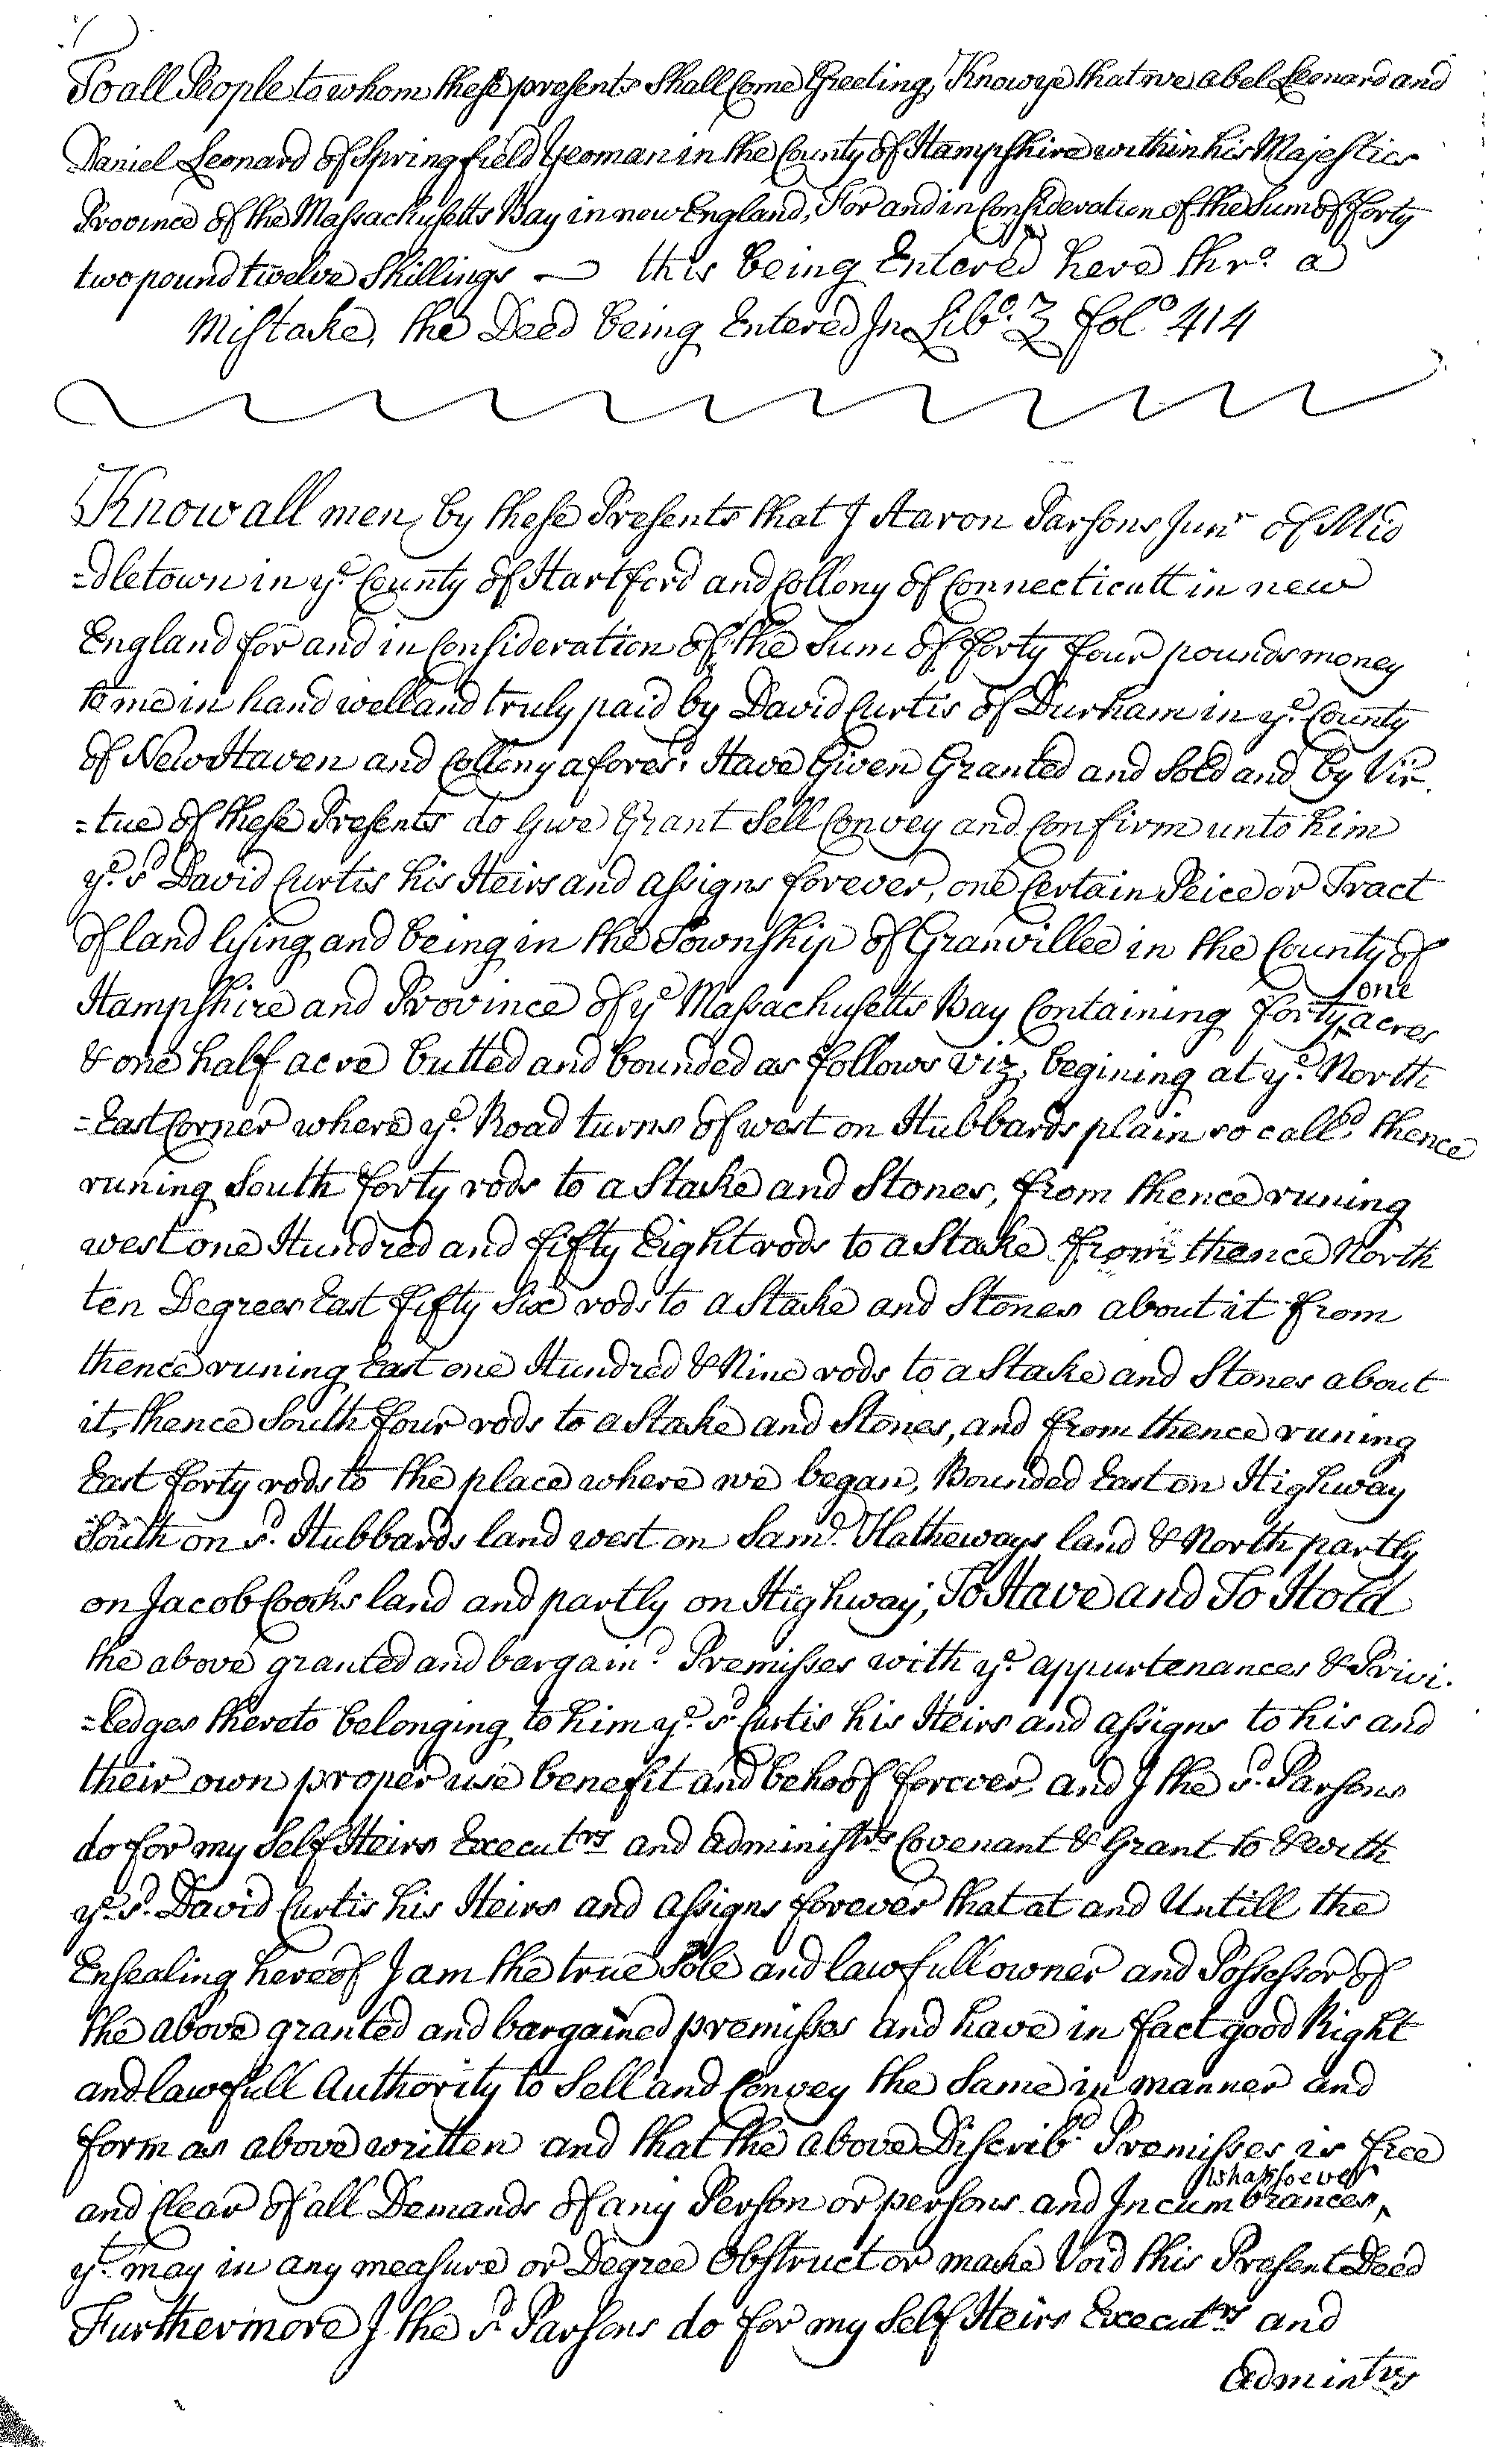 To all People to whom these presents Shall Come Greeting, Know ye that we abel Leonard and
Daniel Leonard of Springfield Yeoman in the County of Hampshire within his Majesties
Province of the Massachusetts Bay in new England, For and in Consideration of the Sum of Forty
two pound twelve Shillings — this being Entered here thro a
Mistake, the Deed being Entered In Libo. 3 folo 414
Know all men, by these Presents that I Aaron Parsons Junr of Mid
=dletown in ye County of Hartford and Collony of Connecticutt in new
England for and in Consideration of the Sum of forty four pounds money
to me in hand well and truly paid by David Curtis of Durham in ye County
of New Haven and Collony aforesd. Have Given Granted and Sold and by Vir
=tue of these Presents do Give Grant Sell Convey and Confirm unto him
ye. sd David Curtis his Heirs and assigns forever, one Certain Peice or Tract
of land lying and being in the Township of Granvillee in the County of
Hampshire and Province of ye Massachusetts Bay Containing forty one acres
& one half acre butted and bounded as follows viz, begining at ye. North
=East Corner where ye. Road turns of west on Hubbards plain so calld thence
runing South forty rods to a Stake and Stones, from thence runing
west one Hundred and fifty Eight rods to a Stake from thence North
ten Degrees East fifty Six rods to a Stake and Stones about it from
thence runing East one Hundred & Nine rods to a Stake and Stones about
it, thence South four rods to a Stake and Stones, and from thence runing
East forty rods to the place where we began, Bounded East on Highway
South on sd. Hubbards land west on Samll. Hatheways land & North partly
on Jacob Cooks land and partly on Highway; To Have and To Hold
the above granted and bargaind Premisses with ye. appurtenances & Privi.
=ledges thereto belonging to him ye. sd Curtis his Heirs and assigns to his and
their own proper use benefit and behoof forever, and I the sd. Parsons
do for my Self Heirs Executrs and administrs Covenant & Grant to & with
ye. sd. David Curtis his Heirs and assigns forever that at and Untill the
Ensealing hereof I am the true Sole and lawfull owner and Possessor of
the above granted and bargained premisses and have in fact good Right
and lawfull Authority to Sell and Convey the Same in manner and
form as above written and that the above Discribd Premisses is free
and Clear of all Demands of any Person or persons and Incumbrances, whatsoever
yt. may in any measure or Degree Obstruct or make Void this Present Deed
Furthermore I the sd Parsons do for my Self Heirs Executrs and
admintrs